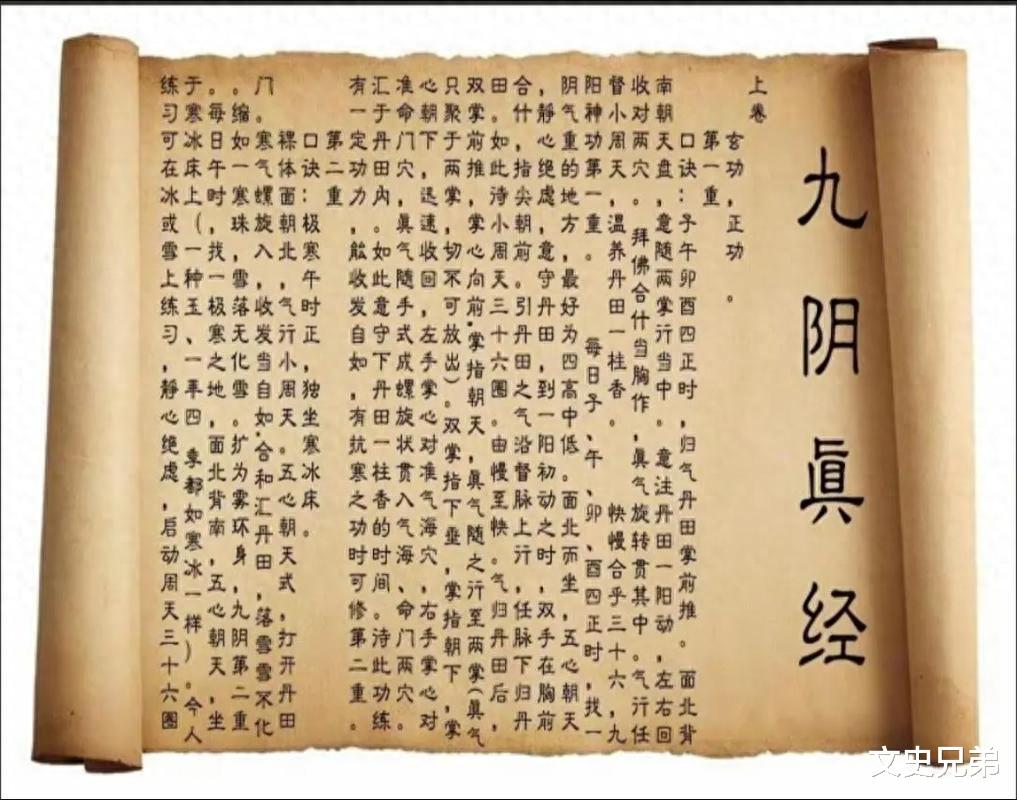 九阴眞经
上卷
玄功，正功。
第一重，
口诀：子午卯酉四正时，归气丹田掌前推。面北背
南朝天盘，意随两掌行当中。意注丹田一阳动，左右回
收对两穴。拜佛合什当胸作，眞气旋转贯其中。气行任
督小周天，温养丹田一柱香。快慢合乎三十六，九
阳神功第一重。每日子、午、卯、酉四正时，找一
阴气重的地方，最好为四高中低。面北而坐，五心朝天
，静心绝虑，意守丹田，到一阳初动之时，双手在胸前
合什，指尖朝前。引丹田之气沿督脉上行，任脉下归丹
田。如此待小周天三十六圈。由慢至快。气归丹田后，
双掌前推，掌心向前，掌指朝天，眞气随之行至两掌（眞气
只聚于两掌，切不可放出）。双掌指下垂，掌指朝下，掌
心朝下，迅速收回，左手掌心对准气海穴，右手掌心对
准命门穴，眞气随手式成螺旋状贯入气海、命门两穴。
汇于丹田内。如此意守下丹田一柱香的时间。待此功练
有一定功力，能收发自如，有抗寒之功时可修第二重。
第二重
口诀：极寒午时正，独坐寒冰床。
裸体面朝北，气行小周天。五心朝天式，打开丹田
门。寒气螺旋入，收发当自如，合和汇丹田，落雪雪不化
。缩如一寒珠，雪落无化雪。扩为雾环身，九阴第二重
。每日午时，找一极寒之地，面北背南，五心朝天，坐
于寒冰床上（一种玉、一年四季都如寒冰一样）。今人
练习可在冰或雪上练习，静心绝虑，启动周天三十六圈
文史兄弟